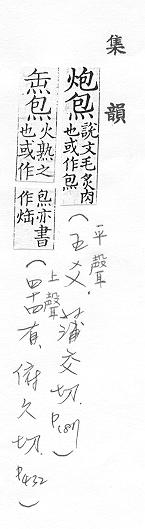 集韻
炮炰說文毛炙肉也或作炰
(平聲 五爻 蒲交切 P.187)
缹炰火熟之也或作
炰亦書作𤈦
(上聲 四十四有 俯久切 P.432)